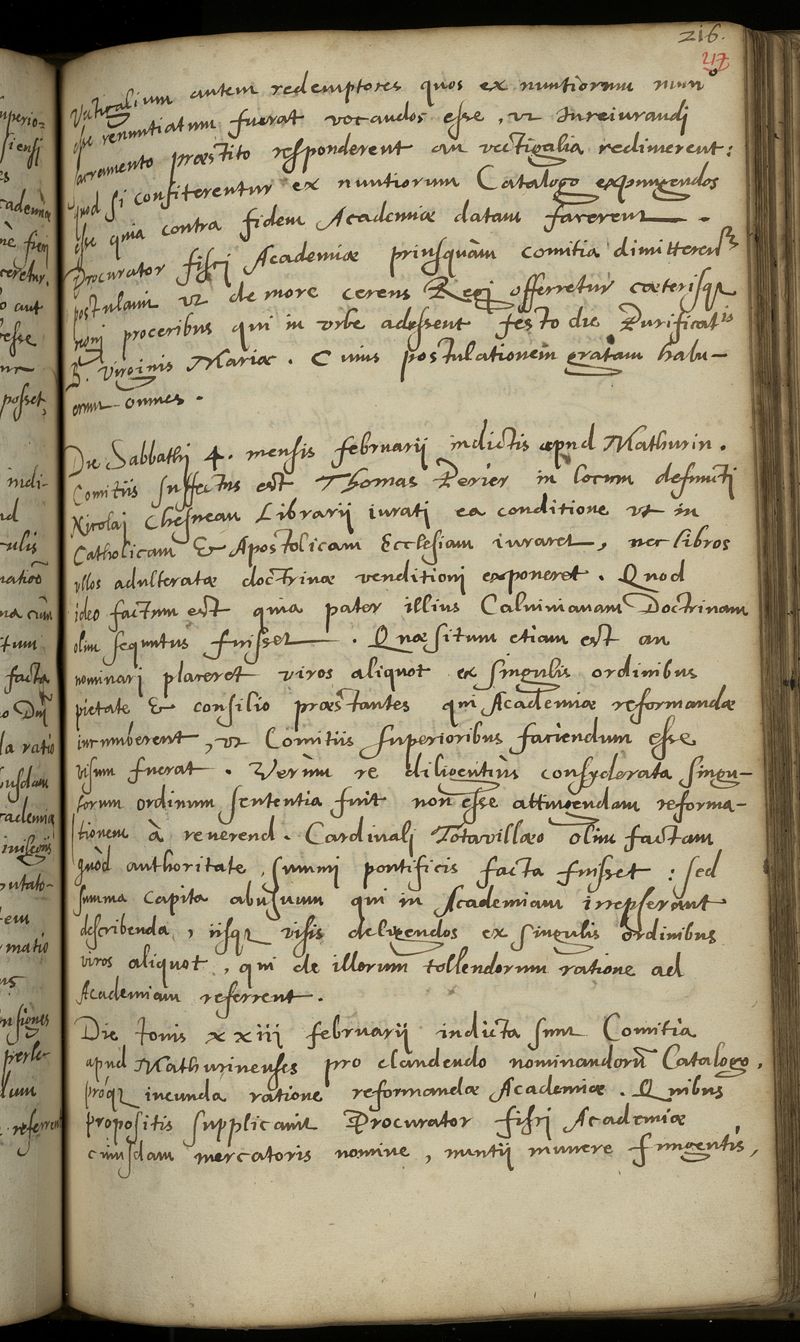 216.
217
Vectigalium autem redemptores quos ex nuntiorum nuno
esse renuntiatum fuerat vocandos esse, ut Iureiurandi
sacramento præstito responderent an vectigalia redimerent:
quod si confiterentur ex nuntiorum Catalogo expungendos
esse quia contra fidem Academiæ datam facerent.
Procurator fisci Academiæ priusquàm comitia dimitterentr
postulavit ut de more cereus Regi offerretur cæterisq
regni proceribus qui in urbe adessent festo die Purificatis
B. Virginis Mariæ. Cuius postulationem gratam habu-
erunt omnes.
Die Sabbathi 4. mensis februarii indictis apud Mathurin.
Comitiis suffectus est Thomas Perier in locum defuncti
Nicolai Chesneau Librarii iurati ea conditione ut in
Catholicam & Apostolicam Ecclesiam iuraret, nec libros
ullos adulteratæ doctrinæ venditioni exponeret. Quod
ideo factum est quia pater illius Calvinianam Doctrinam
olim sequutus fuisset. Quæsitum etiam est an
nominari placeret viros aliquot ex singulis ordinibus
pietate & consilio præstantes qui Academiæ reformandæ
incumberent, ut Comitiis superioribus faciendum esse
visum fuerat. Verùm re diligentiùs consyderata singu-
lorum ordinum sententia fuit non esse attingendam reforma-
tionem à reverend. Cardinali Totavillæo olim factam
quòd authoritate summi pontificis facta fuisset: sed
summa capita abusuum qui in Academiam irrepserant
describenda, iisq visis deligendos ex singulis ordinibus
viros aliquot, qui de illorum tollendorum ratione ad
Academiam referrent.
Die Iovis xxiii februarii indicta sunt Comitia
apud Mathurinenses pro claudendo nominandorū Catalogo,
próq ineunda ratione reformandæ Academiæ. Quibus
propositis supplicavit Procurator fisci Academiæ
cuiusdam mercatoris nomine, nuntii munere fungentis,